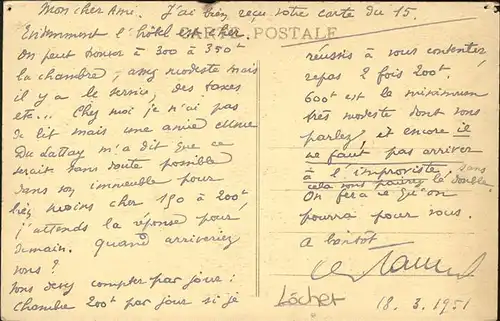 Mon cher Ami. J'ai bien reçu votre carte du 15.
Evidemment l'hôtel est cher.
CARTE POSTALE
On peut trouver à 300 à 350f
la chambre, assez modeste mais
il y a le service, des taxes
etc... Chez moi je n'ai pas
de lit mais une amie
Du Lattay m'a dit que ce
serait sans doute possible
dans son immeuble pour
bien moins cher 150 à 200f
j'attends la réponse pour
demain. quand arriveriez
vous?
Vous devez compter par jour:
chambre 200f par jour si je
réussis à vous contenter
repas 2 fois 200f.
600f est le minimum
très modeste dont vous
parlez, et encore il
ne faut pas arriver
à l'improviste sans
cela vous payez le double
On fera ce qu'on
pourra pour vous.
a bientôt
Lócher
18.3.1951